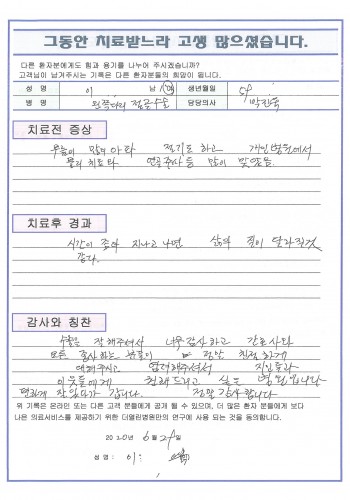 그동안 치료받느라 고생 많으셨습니다.
다른 환자분에게도 힘과 용기를 나누어 주시겠습니까?
고객님이 남겨주시는 기록은 다른 환자분들의 희망이 됩니다.
성 명 이 남/여 생년월일 59
병 명 절골수술 담당의사
치료전 증상
무릎이 많이 아파 하고 개인병원에서
물리치료와 연골주사를 많이 맞았음.
치료후 경과
시간이 좀 지나고 나면 삶의 질이 달라질것
같다.
감사와 칭찬
수술을 잘 해주셔서 너무 감사하고 간호사와
모든 분들이 정말 친절하게
대해주시고
이웃들에게 드리고 싶은 병원입니다
편하게 잘 있다가 갑니다. 정말 감사합니다
위 기록은 온라인 또는 다른 고객 분들에게 공개 될 수 있으며, 더 많은 환자 분들에게 보다
나은 의료서비스를 제공하기 위한 더열린병원만의 연구에 사용 되는 것을 동의합니다.
2020년 6월 29일
성명 : 이